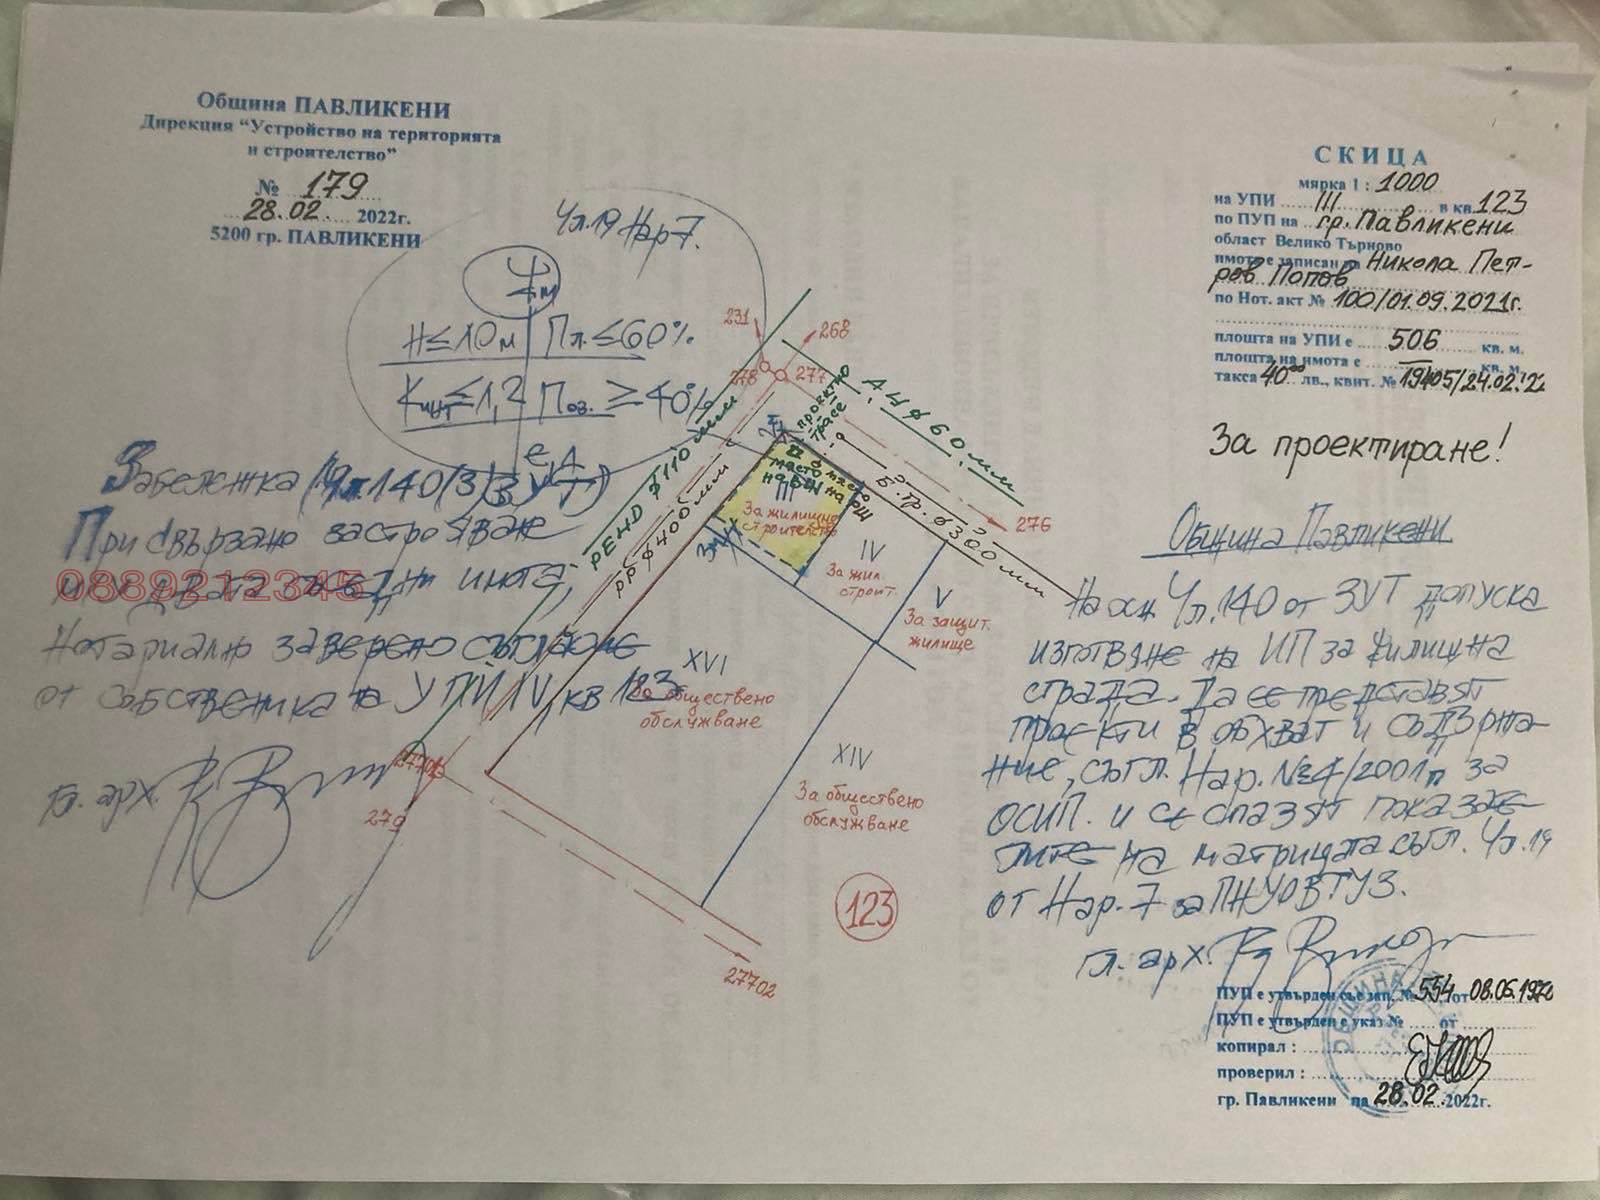 Община ПАВЛИКЕНИ
Дирекция “Устройство на територията
и строителство”
№ 179
28.02. 2022г.
5200 гр. ПАВЛИКЕНИ
СКИЦА
мярка 1 : 1000
на УПИ III в кв. 123
по ПУП на гр. Павликени
област Велико Търново
имота е записан на Никола Пет-
ров Попов
по Нот. акт № 100/01.09.2021г.
площта на УПИ е 506 кв. м.
площта на имота е — кв. м.
такса 40⁰⁰ лв., квит. № 19405/24.02.'22
За проектиране!
Чл.19 Нар7.
Жм
H≤10м Пл.≤60%
Кинт≤1,2 Поз.≥40%
Забележка (Чл.140(3) ЗУТ)
При свързано застрояване
0889212345
имота
Нотариално заверено съгласие
от собственика на УПИ IV, кв 123
гл. арх.
231
268
278
277
276
проектно
трасе
А.Ц ф60мм
РЕНД ф110мм
РР ф400мм
Б.Тр. ф300мм
място
на
РШ
III
За жилищно
строителство
IV
За жил.
строит.
V
За защит.
жилище
XVI
За обществено
обслужване
XIV
За обществено
обслужване
27701
279
123
27702
Община Павликени
На осн. Чл.140 от ЗУТ допуска
изготвяне на ИП за жилищна
сграда. Да се представят
проекти в обхват и съдържа-
ние, съгл. Нар. №4/2001г за
ОСИП. и се спазят показате-
лите на матрицата съгл. Чл.19
от Нар.7 за ПНУОВТУЗ.
гл. арх.
ПУП е утвърден със зап. № 554 от 08.06.197
ПУП е утвърден с указ № от
копирал :
проверил :
гр. Павликени на 28.02. 2022г.
ОБЩИНА